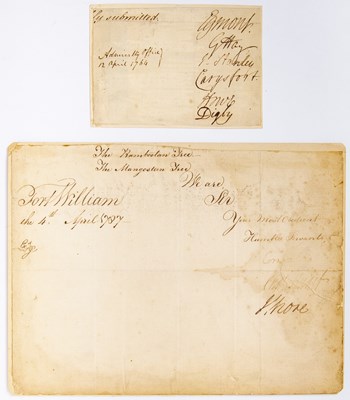 is submitted,
Egmont.
G Hay
Admiralty Office
12 April 1764
Carysfort
Howe
Digby
The Rambostan Tree
The Mangostan Tree
We are
Fort William
Sir
the 4th April 1787
Your Most Obedient
Humble Servants
J Shore